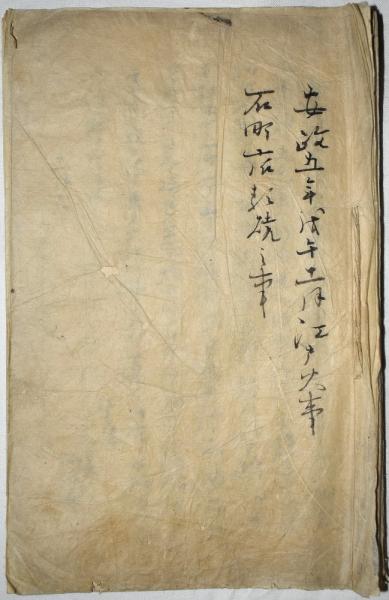 安政五年戊午十一月江戸火事
石町店類焼之事